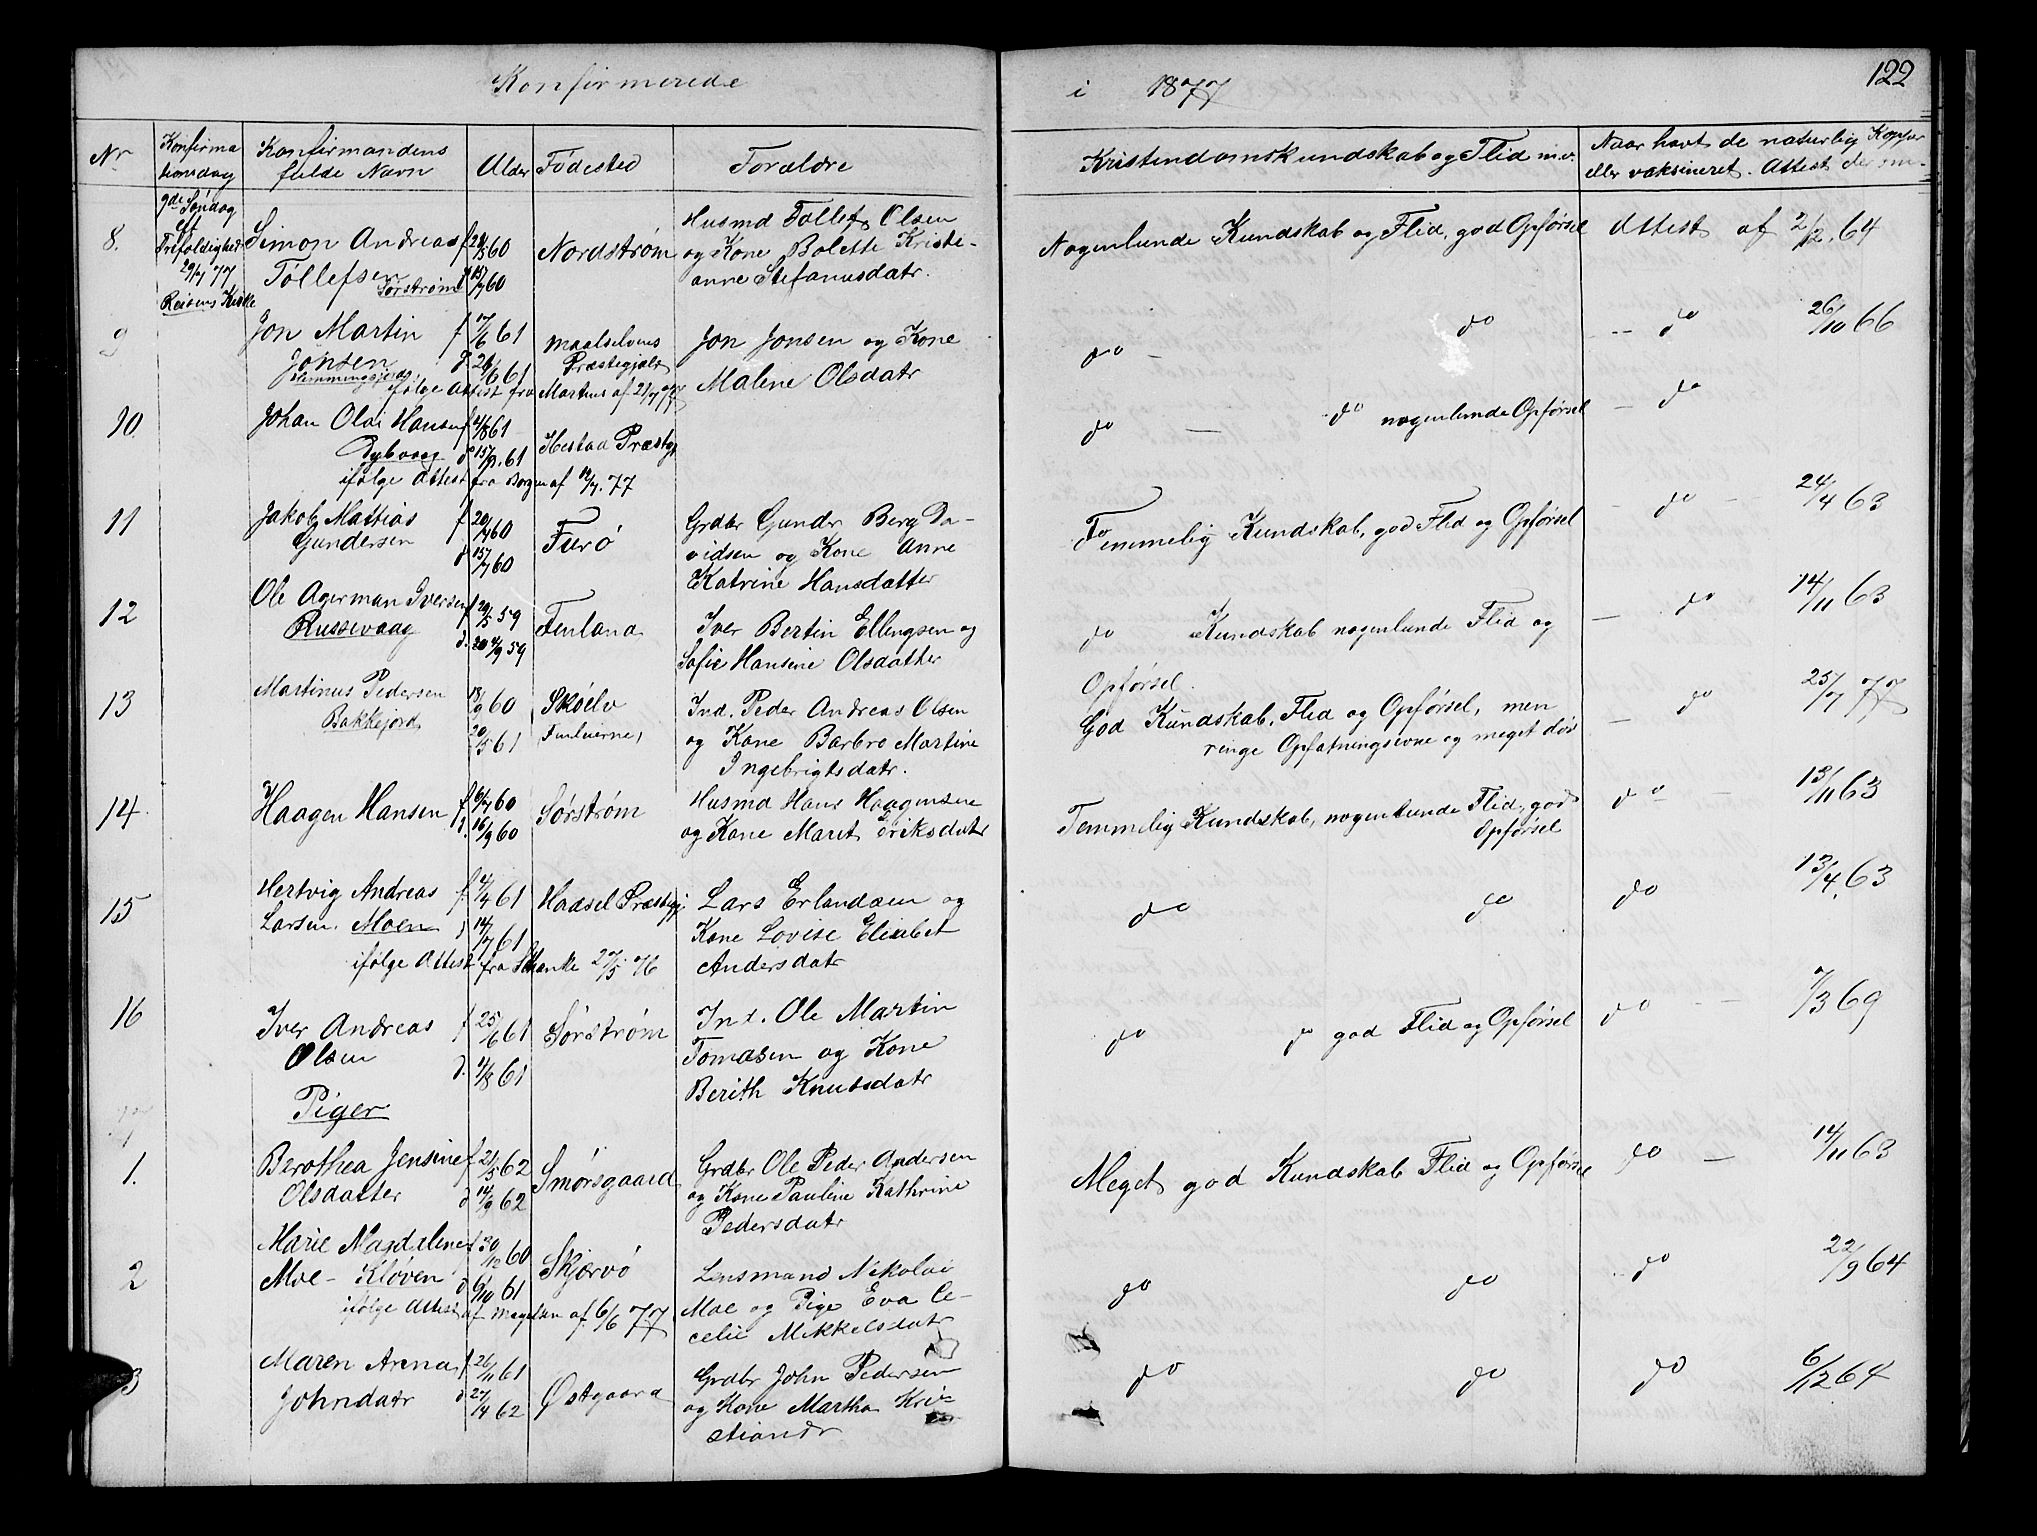 Konfirmerede
i 1877
122
Nr
Konfirma
tionsdag
Konfirmandens
fulde Navn
Alder
Fødested
Forældre
Kristendomskundskab og Flid m.v.
Naar havt de naturlig Kopper
eller vaksineret. Attest
8.
9de Søndag
eft
Trefoldighed
29/7 77
Reisens Kirke
Simon Andreas
Tollefsen
Sørstrøm
f 24/5 60
d 15/7 60
Nordstrøm
Husmd Tollef Olsen
og Kone Bolette Kristi-
anne Stefanusdatr.
Nogenlunde Kundskab og Flid, god Opførsel
Attest af 2/12. 64
9
Jon Martin
Jonsen
f 17/6 61
d. 26/6 61
Maalselvens
Præstegjæld
ifølge Attest fra Martens af 21/7 77
Jon Jonsen og Kone
Malene Olsdatr
do - do
-- do 26/10 66
10.
Johan Olai Hansen
Dybvaag
f 2/8 61
d 15/9. 61
Præstgj
ifølge Attest fra Borgen af 12/7. 77
do - do nogenlunde Opførsel
- do
11
Jakob Mattias
Gundersen
f 20/4 60
d 15/7 60
Furø
Grdbr Gundr Berg Da-
vidsen og Kone Anne
Katrine Hansdatter
Temmelig Kundskab, god Flid og Opførsel
- do - 24/4 63
12
Ole Agerman Iversen
Russevaag
f 29/5 59
d. 4/9 59
Finland
Iver Bertin Ellingsen og
Sofie Hansine Olsdatter
do Kundskab nogenlunde Flid og
Opførsel.
- do 14/11 63
13
Martinus Pedersen
Bakkejord
18/9 60
20/5 61
Skøelv
Ind. Peder Andreas Olsen
og Kone Barbro Martine
Ingebrigtsdatr.
God Kundskab, Flid og Opførsel, men
ringe Opfatningsevne og meget døv
- do 25/7 77
14.
Haagen Hansen
f. 6/7 60
d. 16/9 60
Sørstrøm
Husmd Hans Haagensen
og Kone Maret Eriksdatr
Temmelig Kundskab, nogenlunde Flid, god
Opførsel
do - 13/11 63
15
Hertvig Andreas
Larsen. Moen
f. 4/4 61
d 14/7 61
Hadsel Præstegj
ifølge Attest fra 27/5 76
Lars Erlandsen og
Kone Lovise Elisabet
Andersdatr
do do
do 13/4. 63
16
Iver Andreas
Olsen
f 25/6 61
d. 4/8 61
Sørstrøm
Ind. Ole Martin
Tomasen og Kone
Berith Knutsdatr
do do god Flid og Opførsel
do -- 7/3 69
Piger
1.
Berothea Jensine
Olsdatter
f 21/5 62
d 14/9 62
Smørsgaard
Grdbr Ole Peder Andersen
og Kone Pauline Kathrine
Pedersdatr
Meget god Kundskab Flid og Opførsel
do - 14/11 63
2
Marie Magdalene
Moe - Kløven
f 30/12 60
d 6/10 61
Skjærvø
ifølge Attest af af 6/6 77
Lensmand Nikolai
Moe og Pige Eva Ce-
celie Mikkelsdatr
do do
do 22/9 64
3
Maren Arena
Johndatr
f 26/11 61
d 27/4 62
Østgaard
Grdbr John Pedersen
og Kone Martha Kri-
stiandr
do do
do 6/12 64